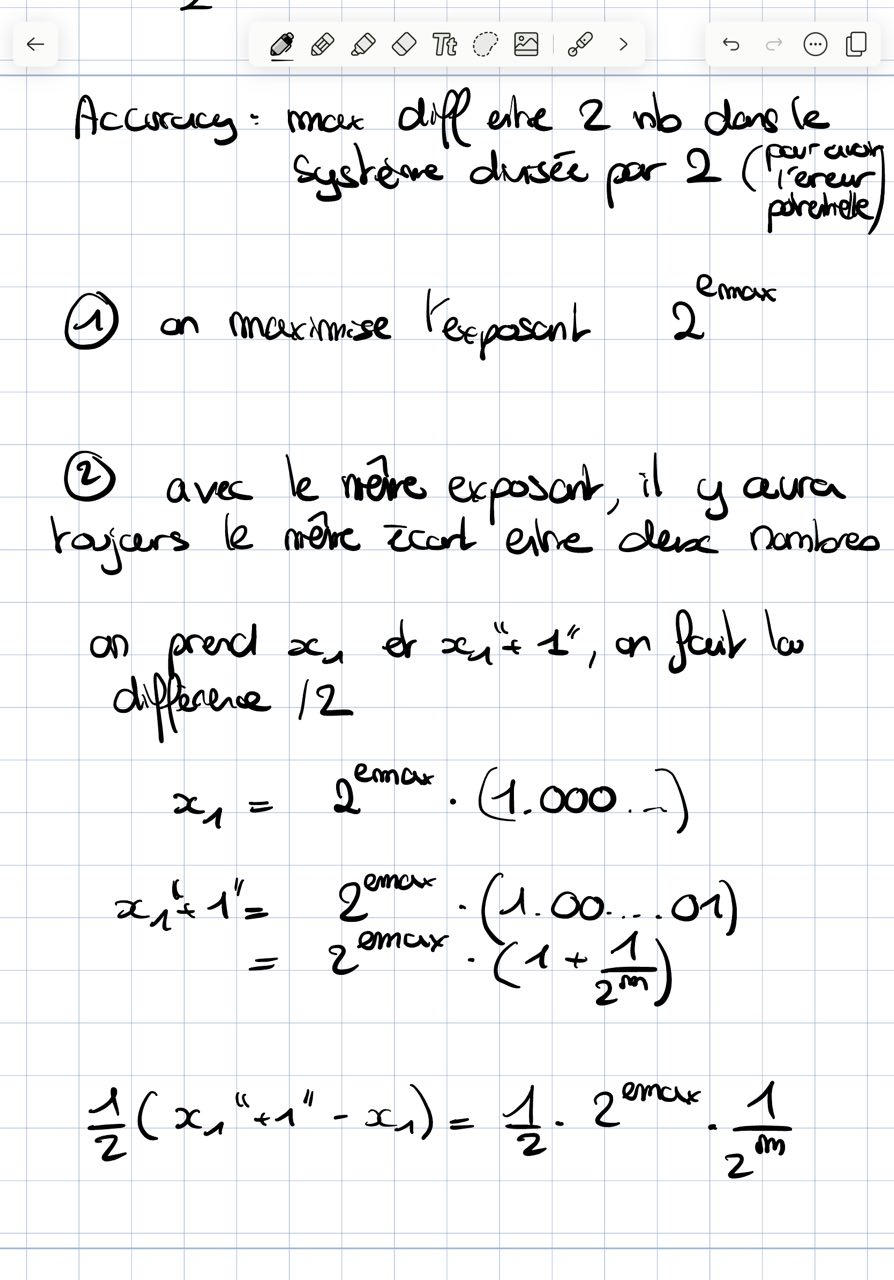 Tt
Accuracy : max diff entre 2 nb dans le
système divisée par 2 (pour avoir
l'erreur
potentielle)
① on maximise l'exposant 2^emax
② avec le même exposant, il y aura
toujours le même écart entre deux nombres
on prend x₁ et x₁"+1", on fait la
différence /2
x₁ = 2^emax · (1.000...)
x₁"+1" = 2^emax · (1.00....01)
= 2^emax · (1 + 1/2^m)
1/2 (x₁"+1" - x₁) = 1/2 · 2^emax · 1/2^m